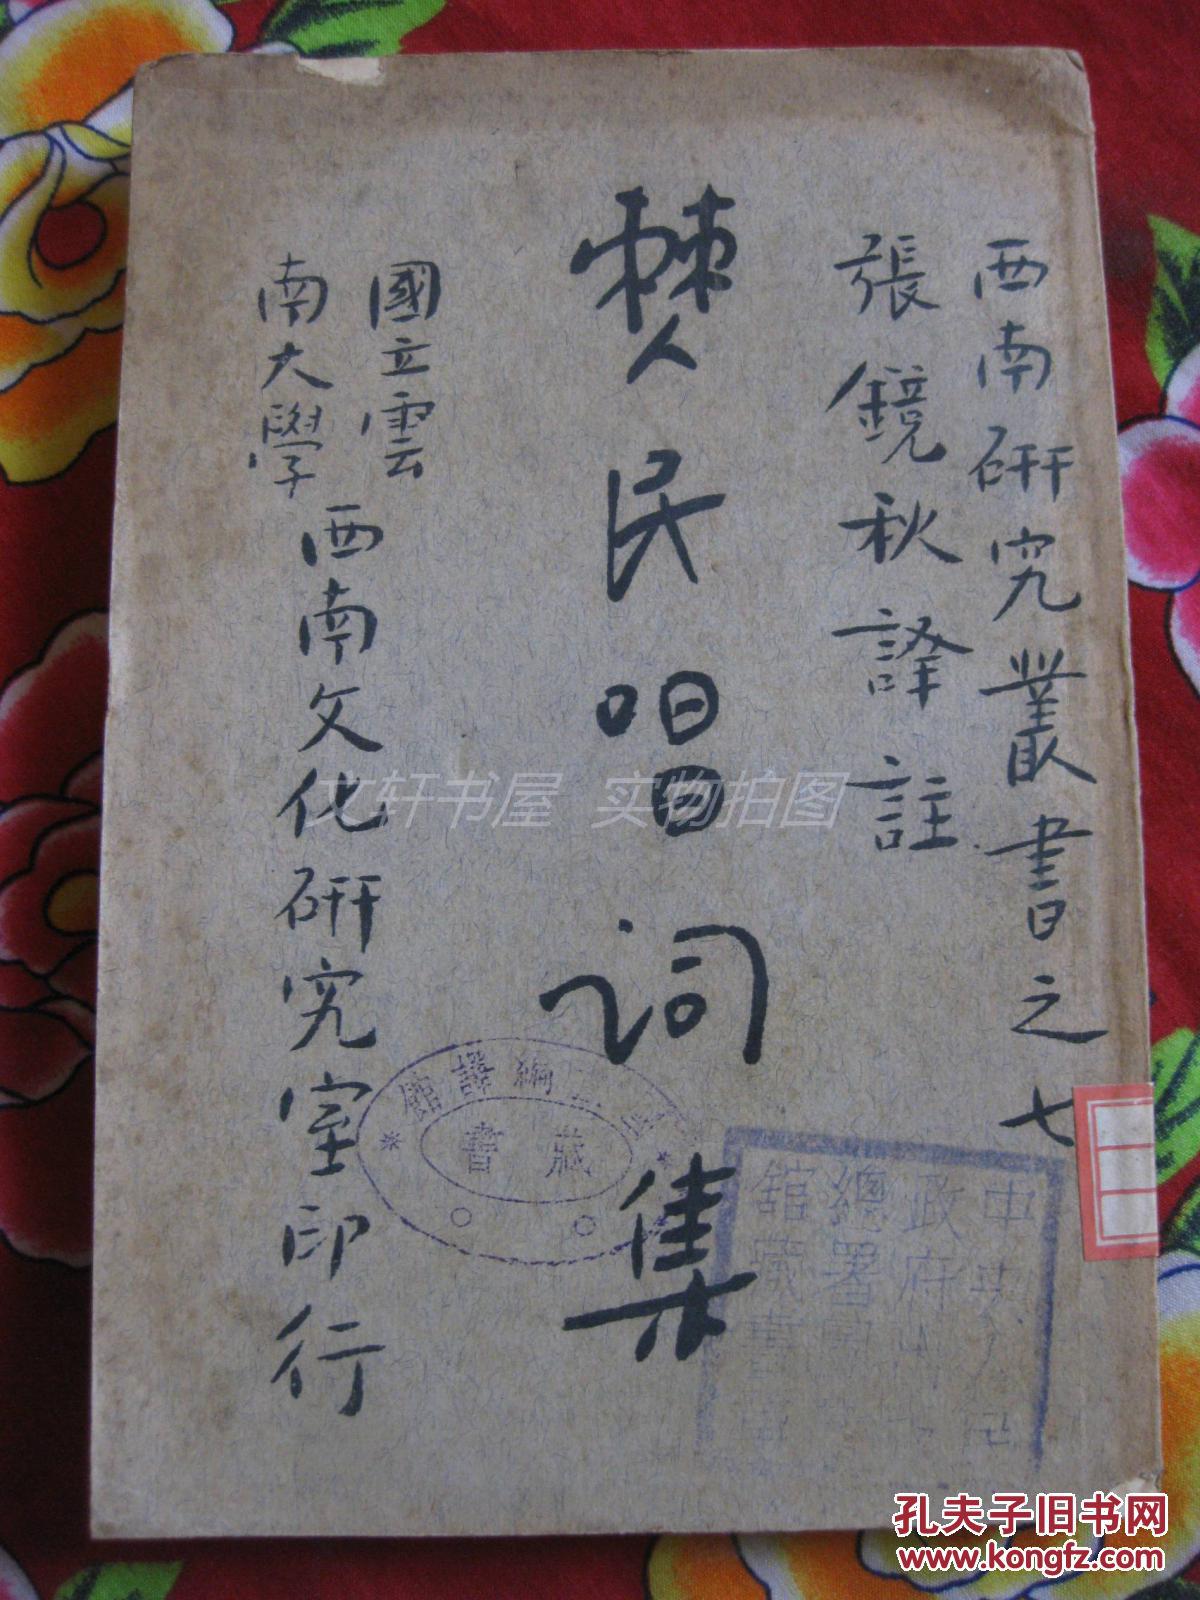 西南研究叢書之七
張鏡秋譯註
僰民唱词集
國立雲
南大學
西南文化研究室印行
編譯館
藏書
中央人民
政府出
總署
館藏書
文轩书屋 实物拍图
孔夫子旧书网
www.kongfz.com